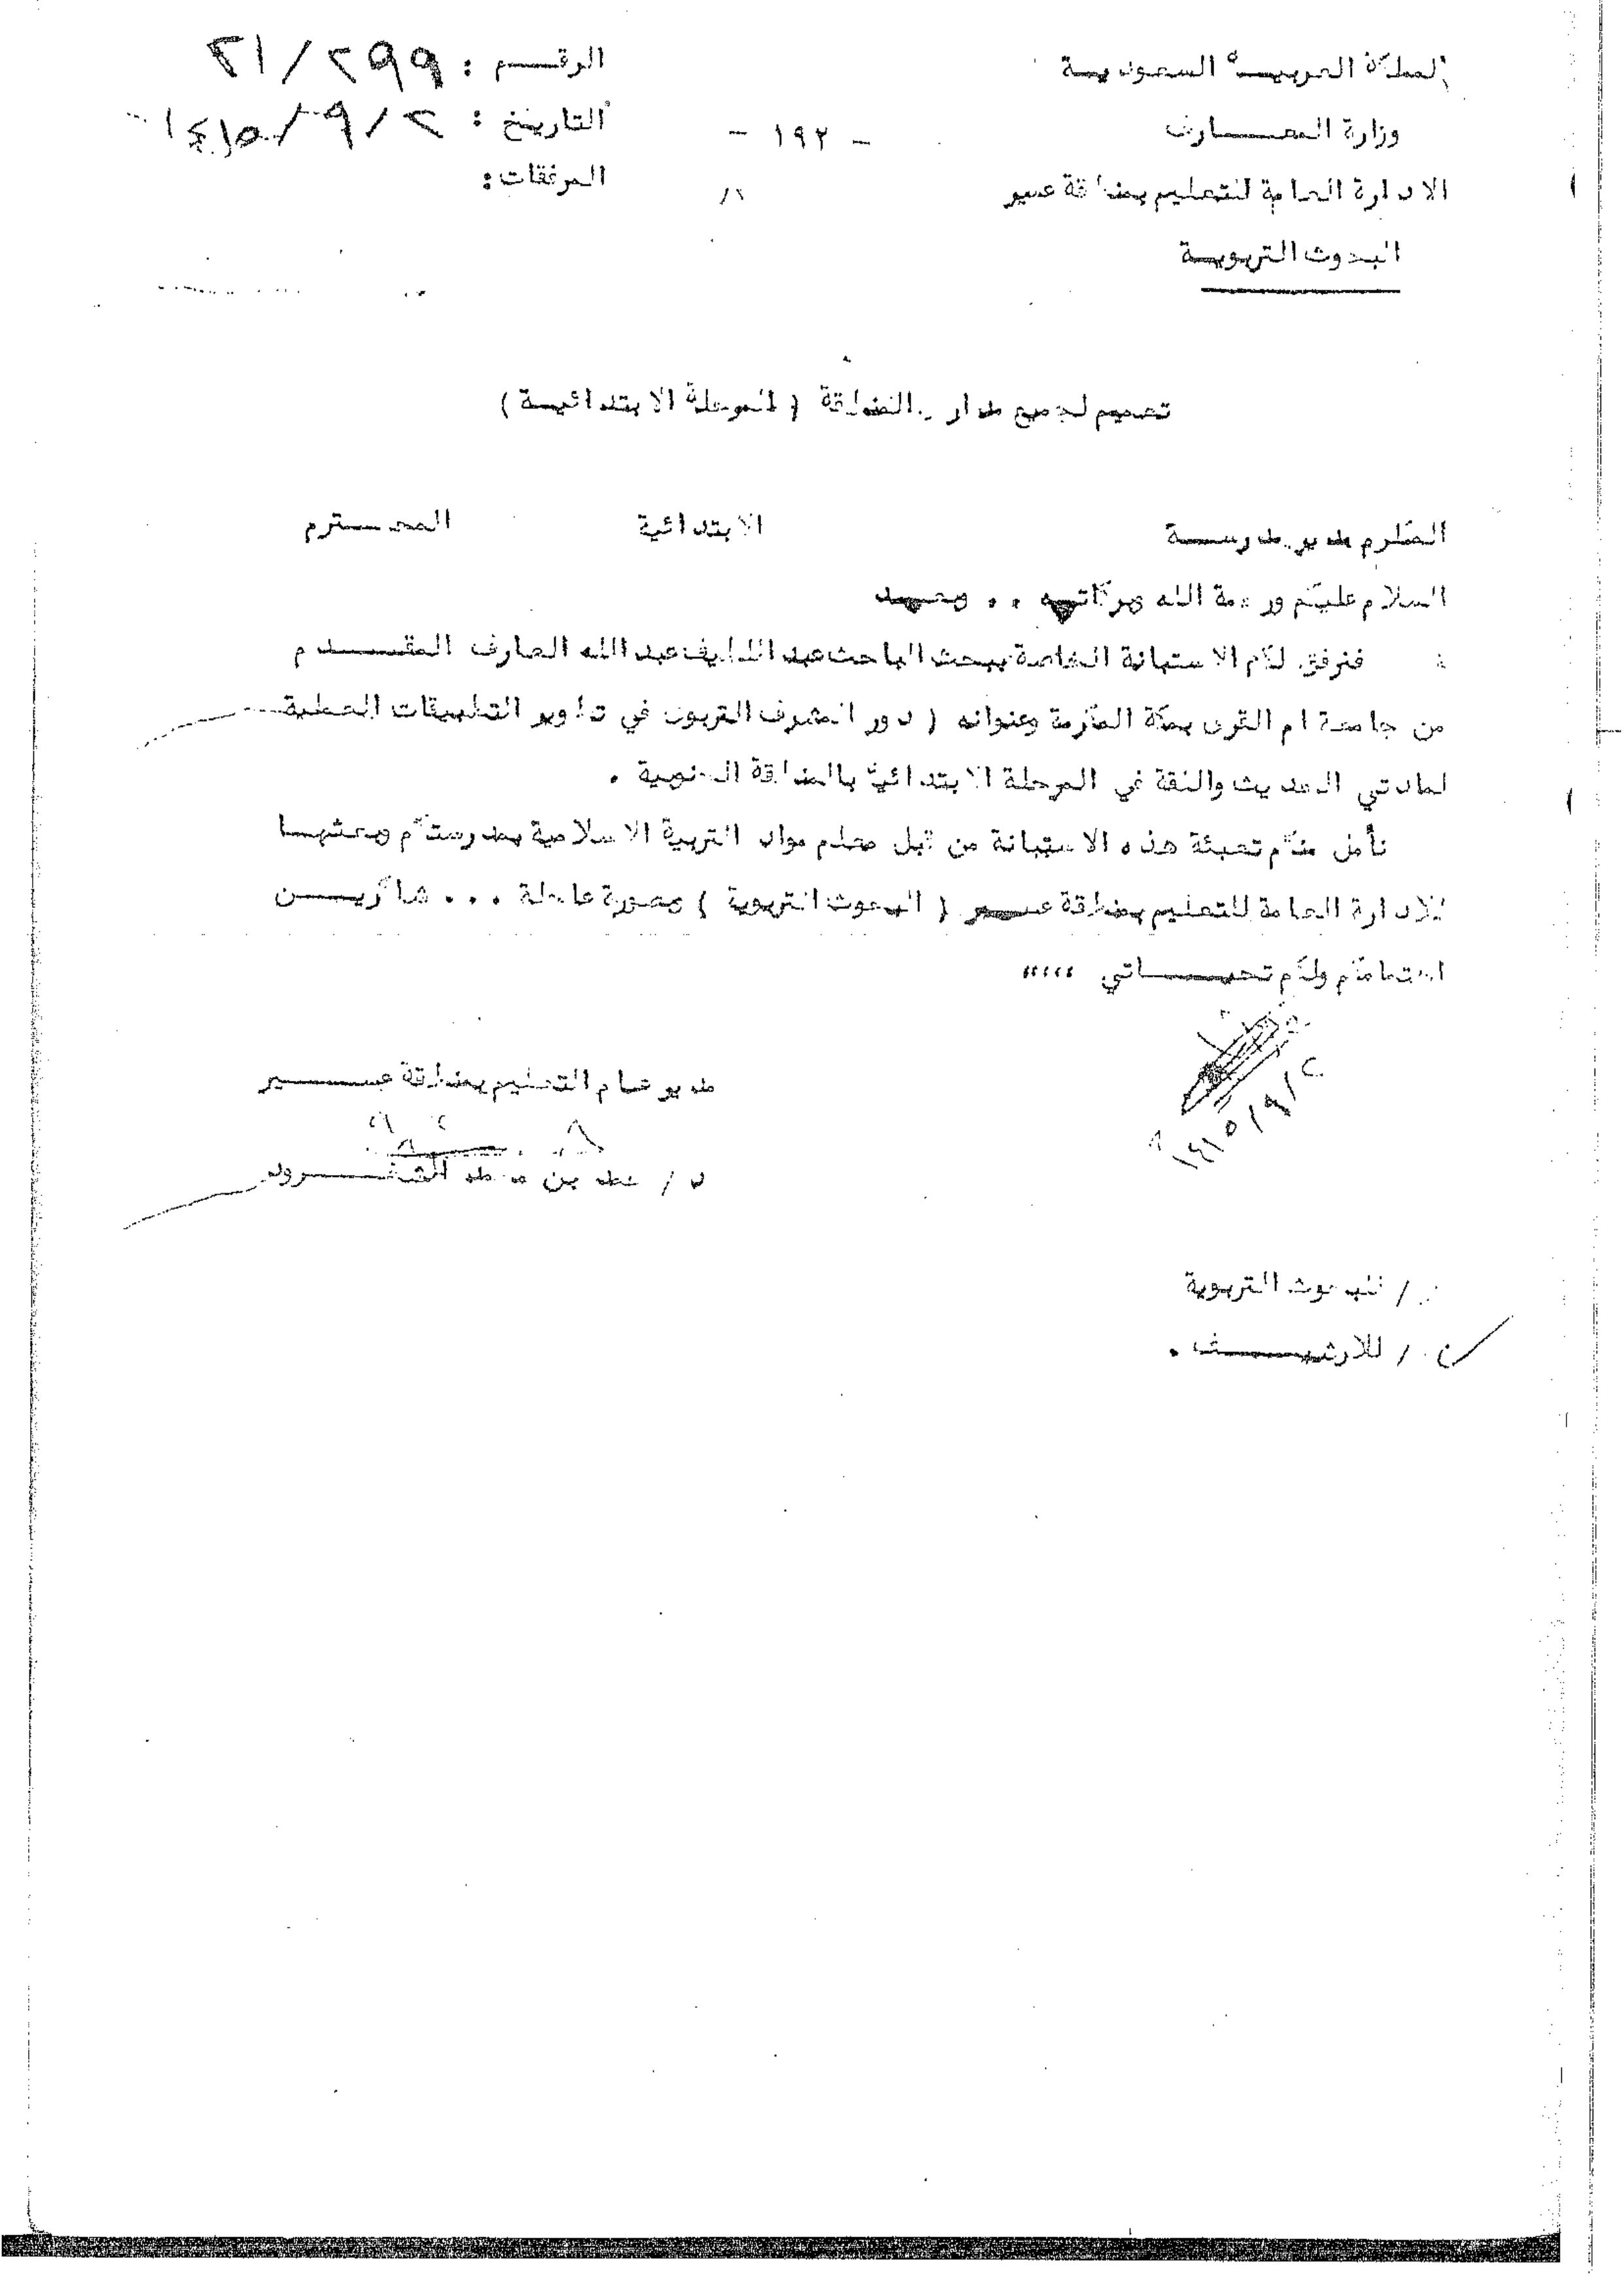 المملكة العربية السعودية
وزارة المعارف
الادارة العامة للتعليم بمنطقة عسير
البحوث التربوية
- ١٩٢ -
الرقم : ٢١/٢٩٩
التاريخ : ١٤١٥/٩/٢
المرفقات :
تعميم لجميع مدارس المنطقة ( المرحلة الابتدائية )
المكرم مدير مدرسة الابتدائية المحترم
السلام عليكم ورحمة الله وبركاته .. وبعد
فنرفق لكم الاستبانة الخاصة ببحث الباحث عبد اللطيف عبد الله العارف المقدم
من جامعة ام القرى بمكة المكرمة وعنوانه ( دور المشرف التربوي في تطوير التطبيقات العملية
لمادتي الحديث والفقة في المرحلة الابتدائية بالمنطقة الجنوبية .
نأمل منكم تعبئة هذه الاستبانة من قبل معلم مواد التربية الاسلامية بمدرستكم وبعثها
للادارة العامة للتعليم بمنطقة عسير ( البحوث التربوية ) بصورة عاجلة ... شاكرين
اهتمامكم ولكم تحياتي ،،،،،
١٤١٥/٩/٢
مدير عام التعليم بمنطقة عسير
د / بن محمد
/ للبحوث التربوية
/ للارشيف .